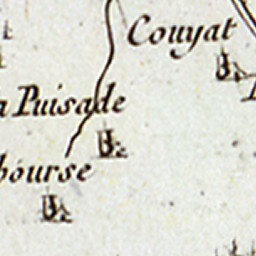 Couyat
a Puisade
bourse